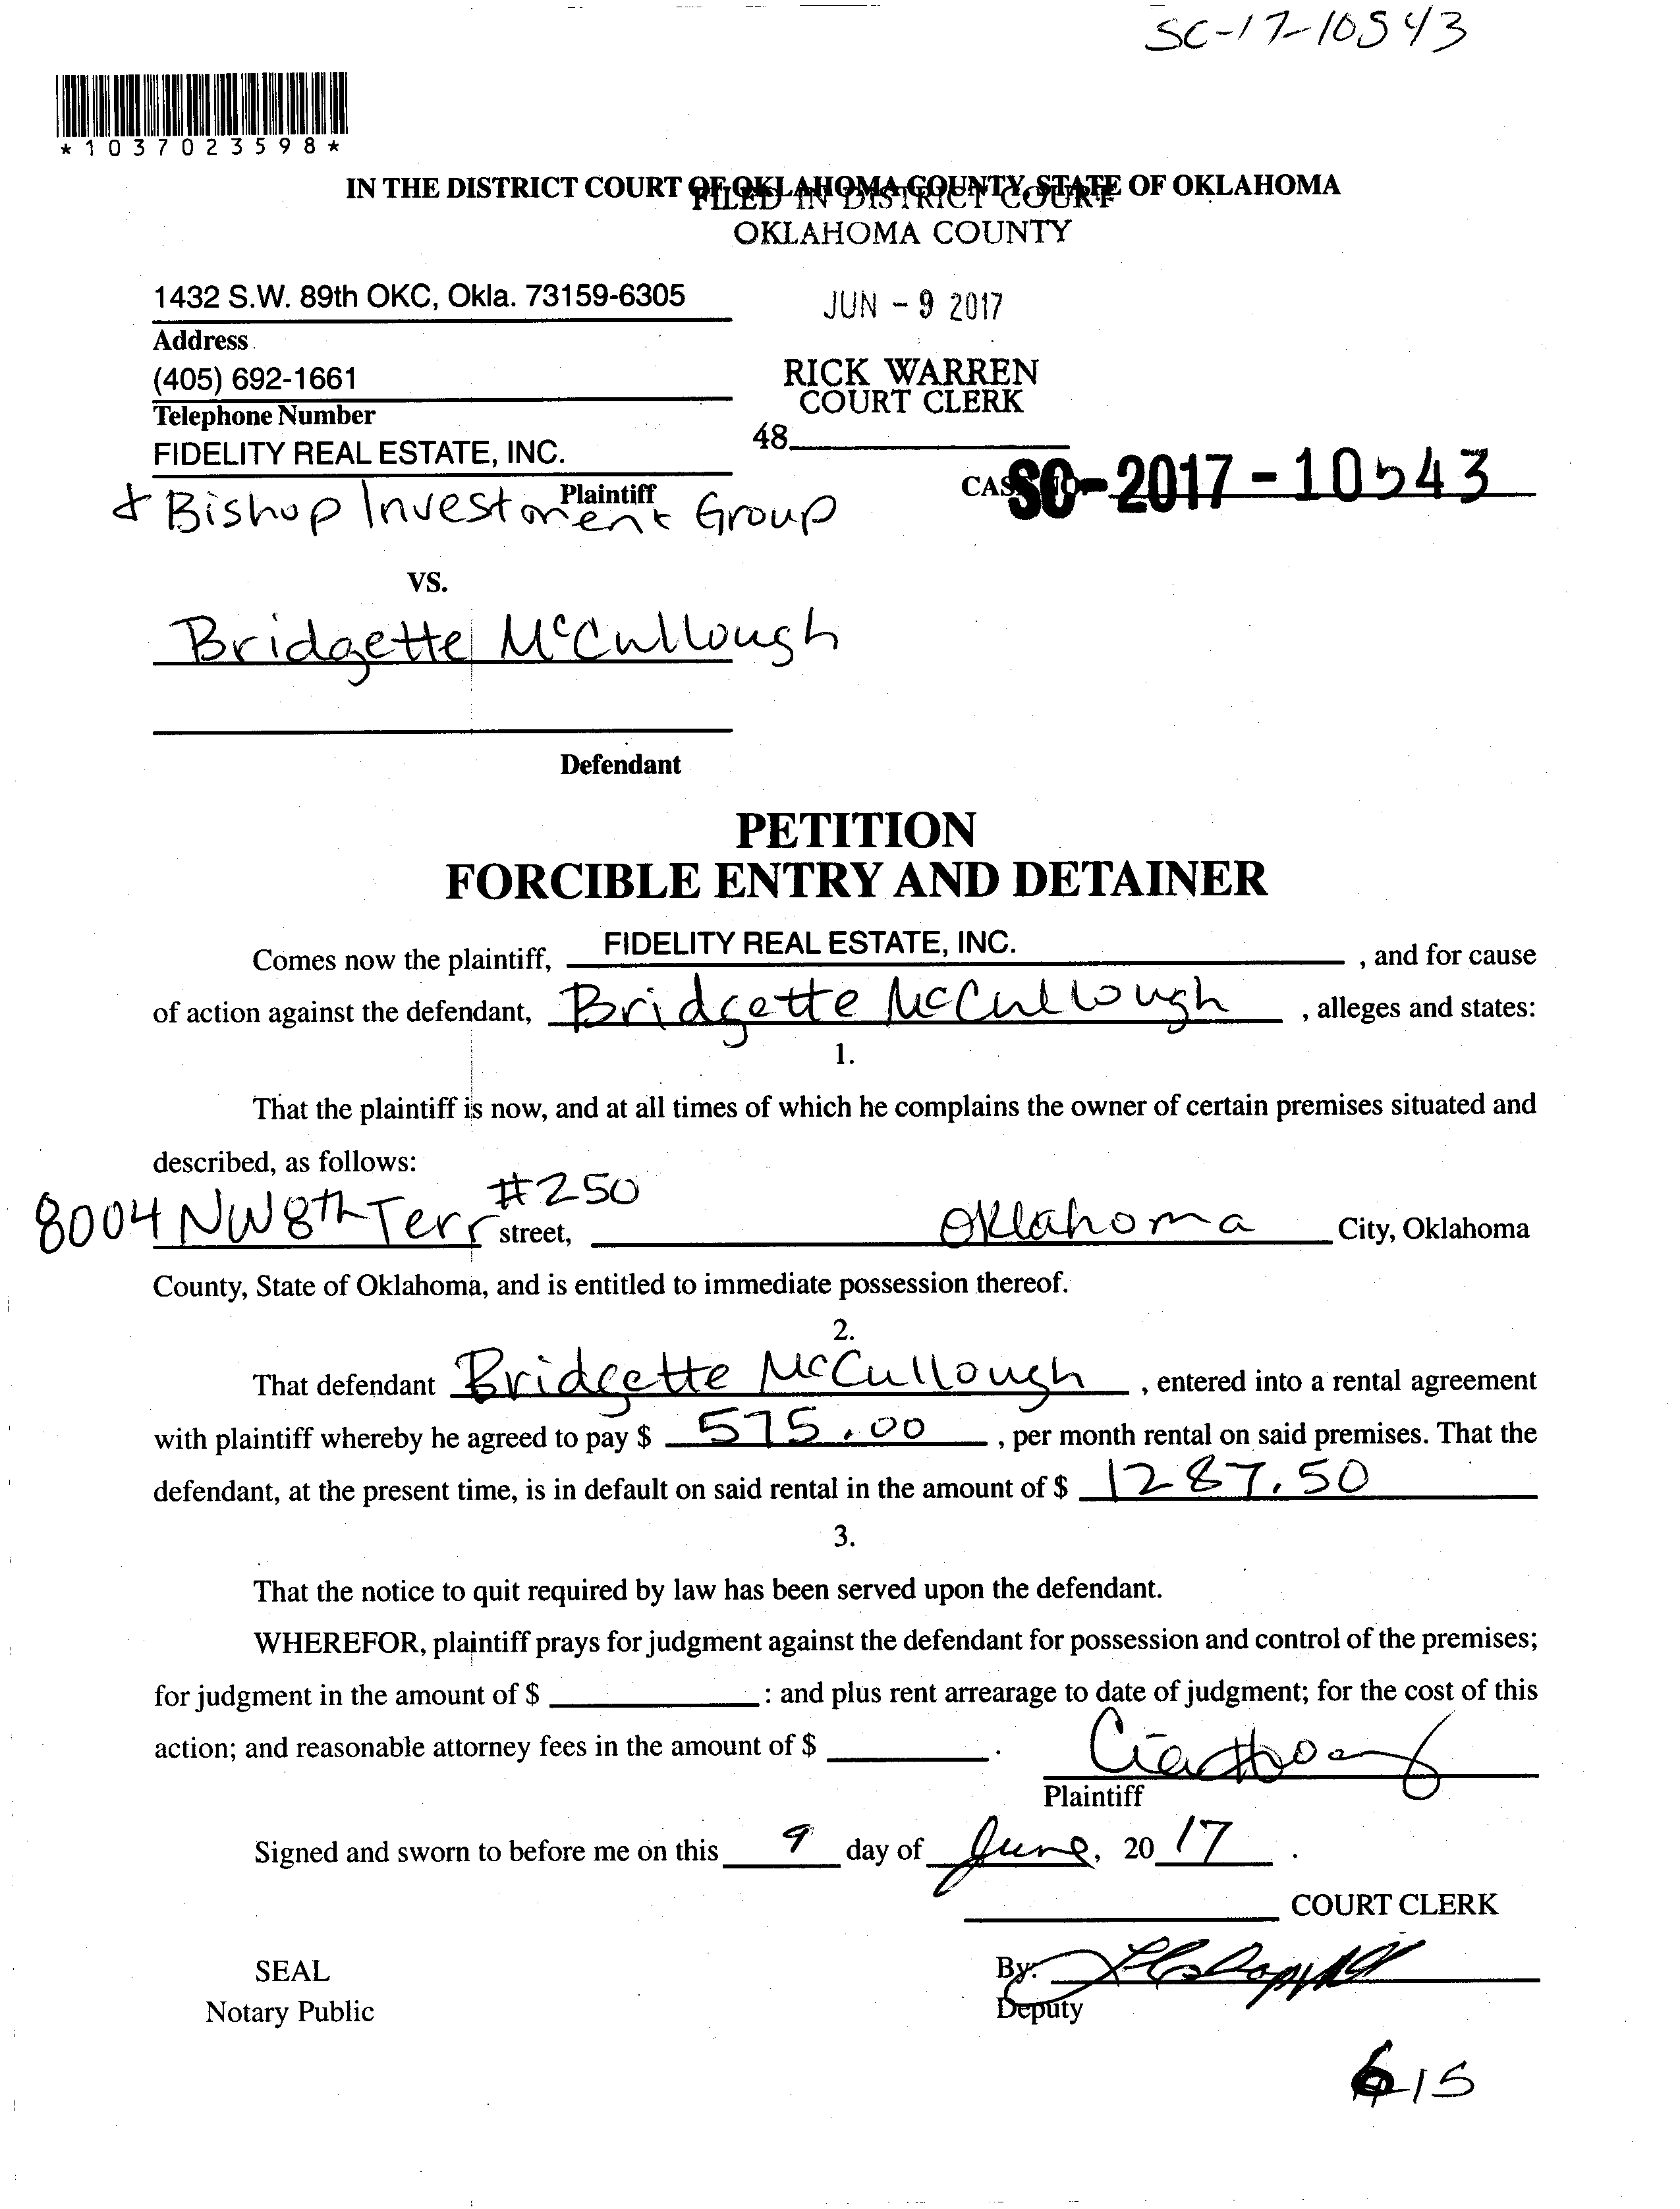 SC-17-10543
*1037023598*
IN THE DISTRICT COURT OF OKLAHOMA COUNTY, STATE OF OKLAHOMA
FILED IN DISTRICT COURT
OKLAHOMA COUNTY
1432 S.W. 89th OKC, Okla. 73159-6305
JUN - 9 2017
Address
(405) 692-1661
RICK WARREN
COURT CLERK
Telephone Number
48
FIDELITY REAL ESTATE, INC.
Plaintiff
CASE NO. SC-2017-10543
& Bishop Investment Group
VS.
Bridgette McCullough
Defendant
PETITION
FORCIBLE ENTRY AND DETAINER
Comes now the plaintiff, FIDELITY REAL ESTATE, INC. , and for cause
of action against the defendant, Bridgette McCullough , alleges and states:
1.
That the plaintiff is now, and at all times of which he complains the owner of certain premises situated and
described, as follows:
8004 NW 8th Terr #250 street, Oklahoma City, Oklahoma
County, State of Oklahoma, and is entitled to immediate possession thereof.
2.
That defendant Bridgette McCullough , entered into a rental agreement
with plaintiff whereby he agreed to pay $ 575.00 , per month rental on said premises. That the
defendant, at the present time, is in default on said rental in the amount of $ 1287.50
3.
That the notice to quit required by law has been served upon the defendant.
WHEREFOR, plaintiff prays for judgment against the defendant for possession and control of the premises;
for judgment in the amount of $ : and plus rent arrearage to date of judgment; for the cost of this
action; and reasonable attorney fees in the amount of $ .
Plaintiff
Signed and sworn to before me on this 9 day of June, 20 17 .
COURT CLERK
SEAL
By:
Notary Public
Deputy
615